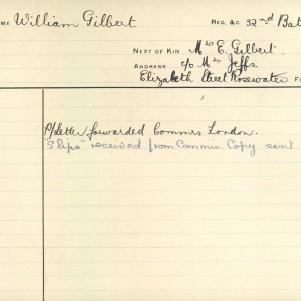 ME William Gilbert REG. &C 32nd Bat
NEXT OF KIN Mrs E. Gilbert.
ADDRESS c/o Mrs Jeffs
Elizabeth Street Rosewater
P/Letter forwarded Commrs London.
Slips received from Commis. Copy sent